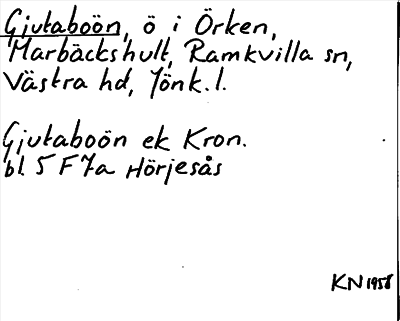 Gjutaboön, ö i Örken,
Marbäckshult, Ramkvilla sn,
Västra hd, Jönk.l.
Gjutaboön ek Kron.
bl. 5 F 7a Hörjesås
KN 1958